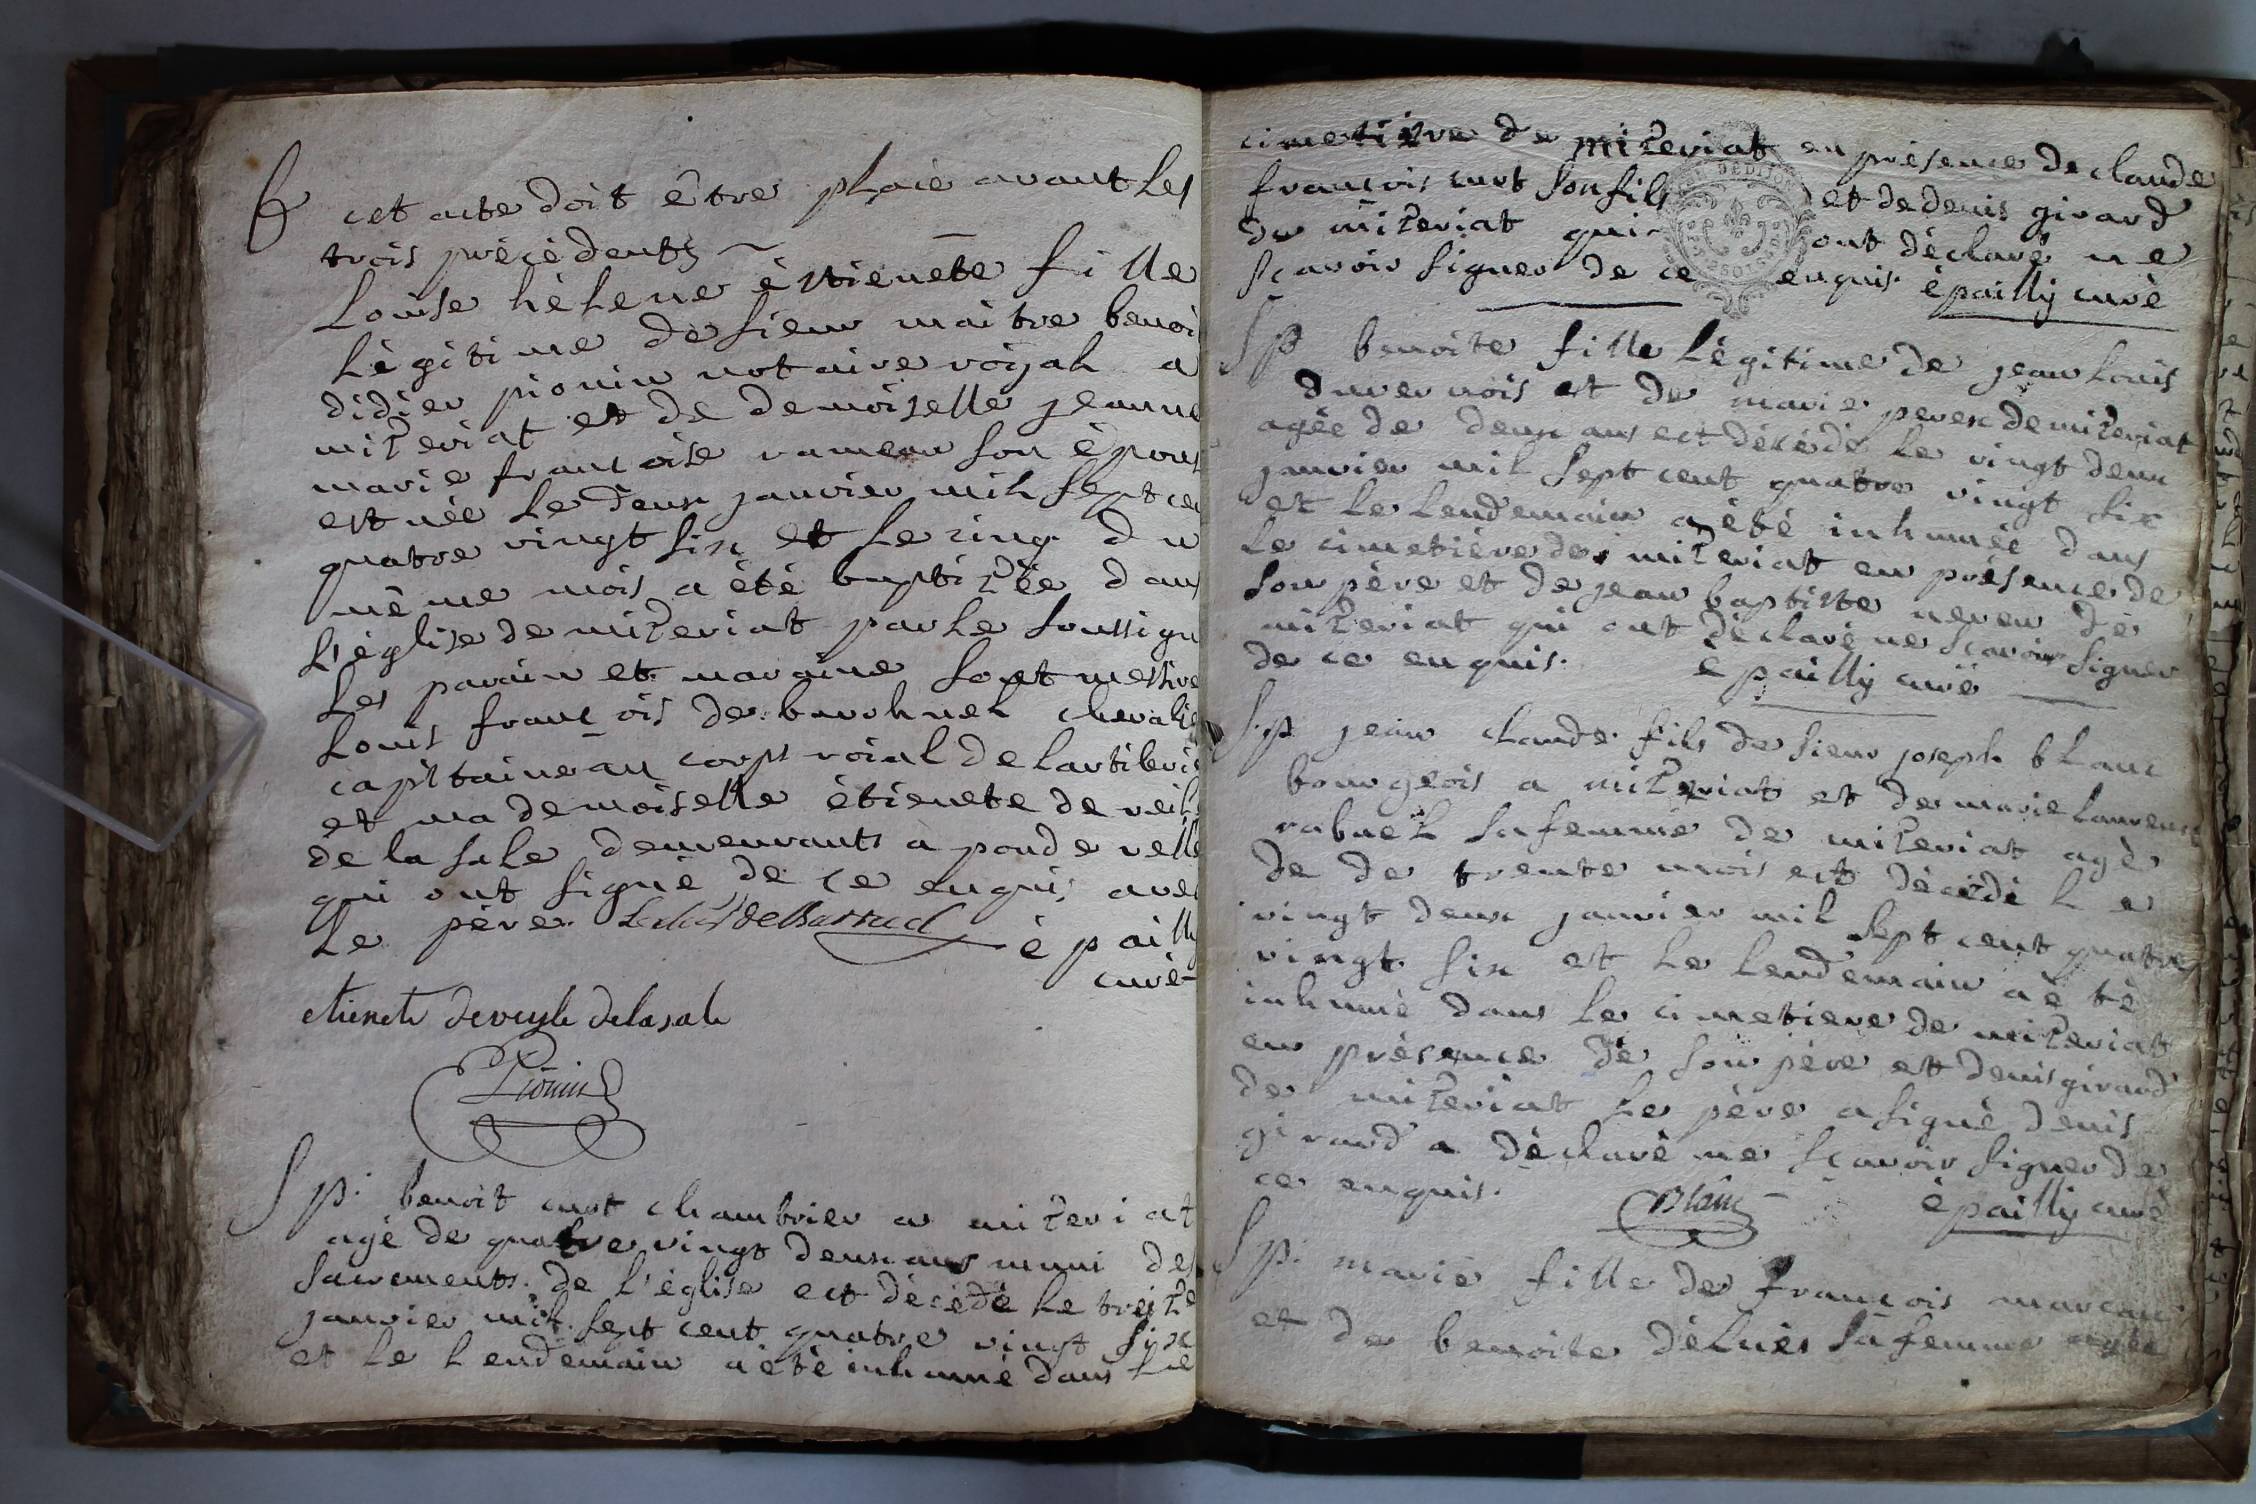 B cet acte doit être placé avant les
trois précèdents
Louise hèlene èttienette fille
lègitime de sieur maitre benoi
didier pionin notaire roÿal a
mizeriat et de demoiselle jeanne
marie francoise rameau son èpous
est nèe le deux janvier mil sept cen
quatre vingt six et le cinq du
même mois a èté baptizèe dans
l'èglise de mizeriat par le soussign
les parain et maraine sont messire
Louis francois de chevalie
capitaine au corps roial de l'artilerie
et mademoiselle ètienete de veile
de la sale demeurants a pondevelle
qui ont signè de ce enquis avec
le père. èpailly
curè
etienete deveyle delasale
Pionin
Sp. benoit curt chambrier a mizeriat
agè de quatre vingt deux ans muni des
sacrements de l'èglise est dècèdè le treize
janvier mil sept cent quatre vingt six
et le lendemain a ètè inhumè dans le
cimetière de mizeriat en présence de claude
francois curt son fils et de denis girard
de mizeriat qui ont dèclarè ne
scavoir signer de ce enquis. èpailly curè
Sp benoite fille lègitime de jean louis
duvernois et de marie perex de mizeriat
agèe de deux ans est dècèdè le vingt deux
janvier mil sept cent quatre vingt six
et le lendemain a ètè inhumèe dans
le cimetière de mizeriat en présence de
son père et de jean baptiste neveu de
mizeriat qui ont dèclarè ne scavoir signer
de ce enquis. èpailly curè
S.p jean claude fils de sieur joseph blanc
bourgeois a mizeriat et de marie laurence
rabuel sa femme de mizeriat agè
de de trente mois est dècèdè le
vingt deux janvier mil sept cent quatre
vingt six et le lendemain a è tè
inhumè dans le cimetiere de mizeriat
en présence de son père et denis girard
de mizeriat le père a signè denis
girard a dèclarè ne scavoir signer de
ce enquis. Blanc èpailly curè
Sp. marie fille de francois
et de benoite sa femme agée